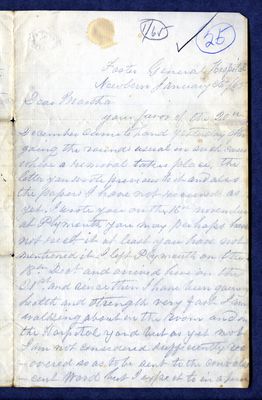 1/65
25
Foster General Hospital
Newbern January 3
Dear Beartha
your favor of the 20th
December came to hand yesterday after
going the round usual in such cases
where a removal takes place, the
letter you wrote previous to it and also
the papers I have not received as
yet. I wrote you on the 16th november
at Plymouth you may perhaps have
not rec'd it at least you have not
mentioned it I left Plymouth on the
18th Oct and arrived here on the
21st and since then I have been gaining
health and strength very fast I am
walking about in the Room and in
the Hospital yard but as yet not
I am not considered sufficiently re
covered so as to be sent to the convales
cent Ward but I expect to in a few